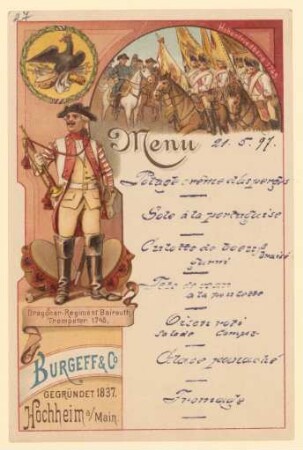 27
Hohenfriedberg 1745
Menu
21. 5. 97.
Potage crème d'asperges
Sole à la portugaise
Culotte de boeuf
braisé
garni
Tête de veau
à la
Oison roti
Salade Compote
Glace panaché
Fromage
Dragoner-Regiment Baireuth
Trompeter 1745.
BURGEFF & Co
GEGRÜNDET 1837.
Hochheim a/Main